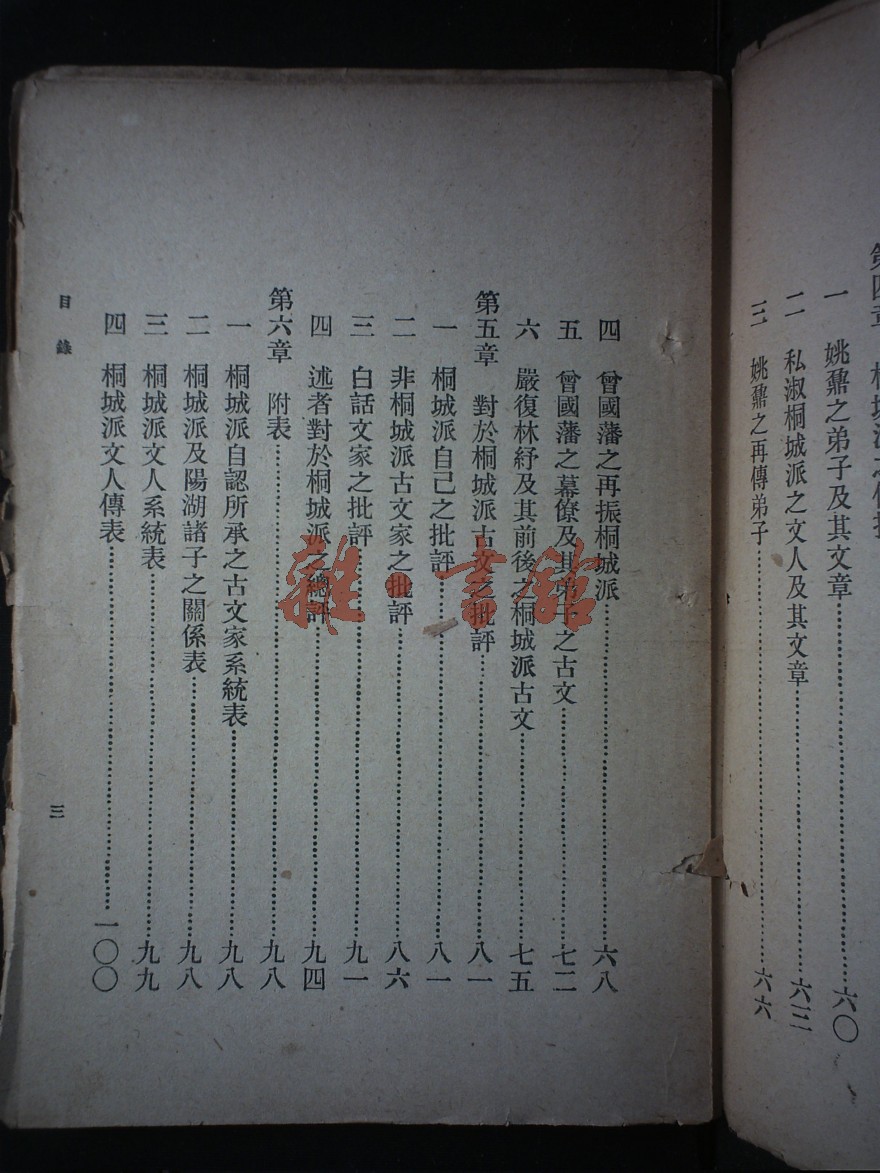 一　姚鼐之弟子及其文章……六〇
二　私淑桐城派之文人及其文章……六三
三　姚鼐之再傳弟子……六六
四　曾國藩之再振桐城派……六八
五　曾國藩之幕僚及其弟子之古文……七二
六　嚴復林紓及其前後之桐城派古文……七五
第五章　對於桐城派古文之批評……八一
一　桐城派自己之批評……八一
二　非桐城派古文家之批評……八六
三　白話文家之批評……九一
四　述者對於桐城派之總評……九四
第六章　附表……九八
一　桐城派自認所承之古文家系統表……九八
二　桐城派及陽湖諸子之關係表……九八
三　桐城派文人系統表……九九
四　桐城派文人傳表……一〇〇
目錄
三
雜·書館